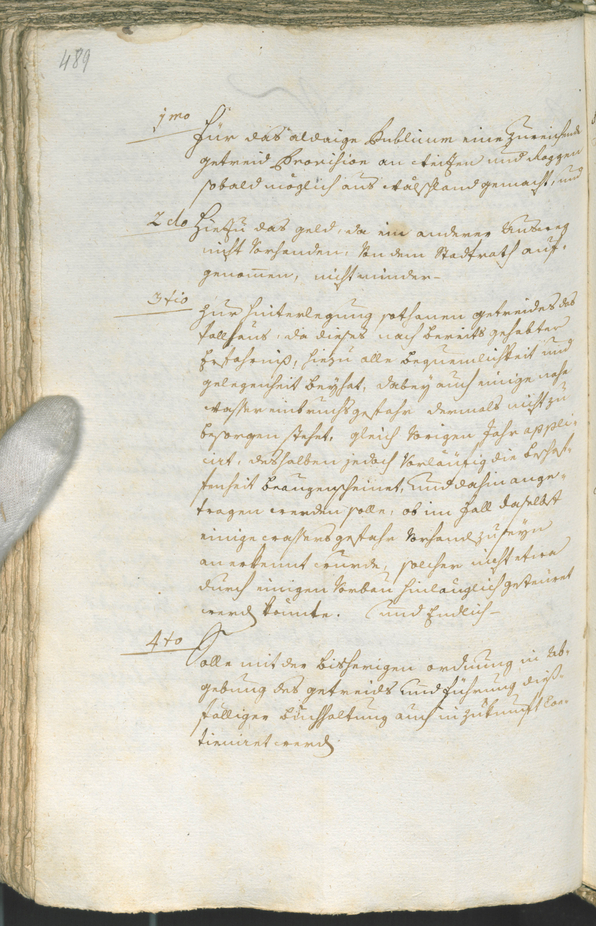 489
1mo
Für das aldaige Publicum eine zureichende
getreid Provision an Weitzen und Roggen
sobald möglich aus Wälschland gemacht, und
2do Hiezu das geld, da ein anderer Ausweg
nicht Vorhanden, Von dem Stadtrath auf-
genomen, nicht minder-
3tio
Zur hinterlegung sothanen getreides das
Fallhaus, da dieses nach bereits gehabter
Erfahrniß, hiezu alle bequemlichkeit und
gelegenheit beyhat, dabey auch einige nahe
Wasser einbruchs gefahr dermals nicht zu
besorgen stehet, gleich Vorigen Jahr appli-
cirt, deshalben jedoch Vorläufig die beschaf-
fenheit beaugenscheinet, und dahin ange-
tragen werden solle, ob im Fall daselbst
einige wassers gefahr Vorhand zu seyn
anerkennt wurde, solcher nicht etwa
durch einigen Vorbau hinlänglich gesteuret
werd könnte. und Endlich-
4to
Solle mit der bisherigen ordnung in Ab-
gebung des getreids und führung dieß-
fälliger buchhaltung auch in zukunft Con-
tinuiret werd